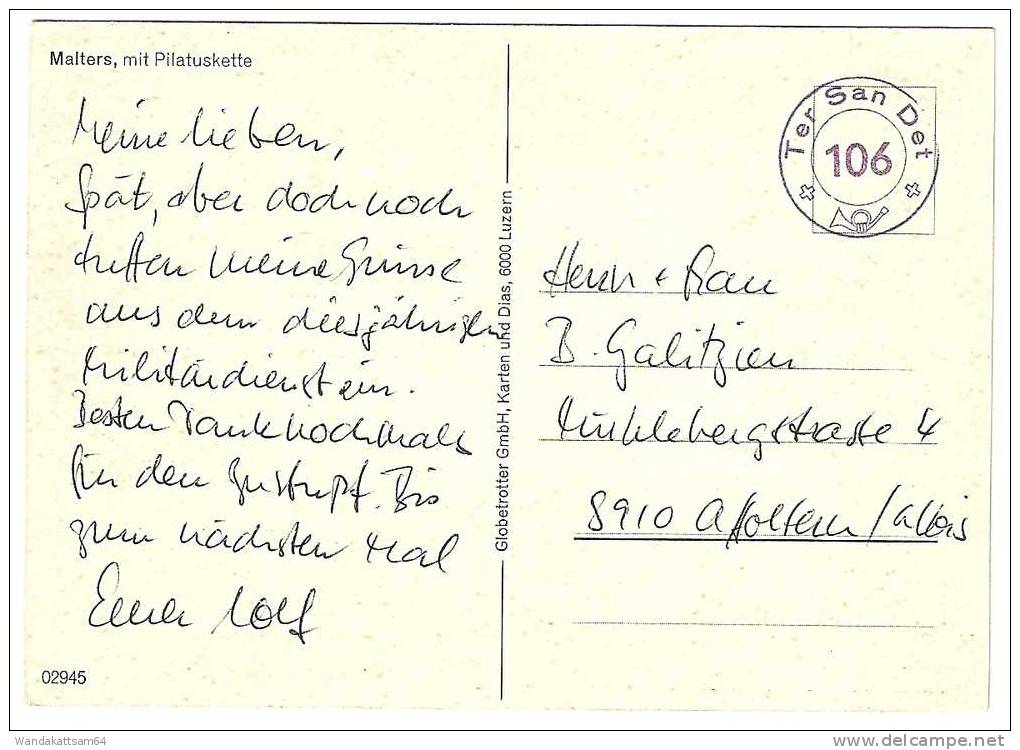 Malters, mit Pilatuskette
Meine lieben,
Spät, aber doch noch
treffen meine Grüsse
aus dem diesjährigen
Militärdienst ein.
Besten Dank nochmals
für den
Bis
zum nächsten Mal
Euer Rolf
02945
Globetrotter GmbH, Karten und Dias, 6000 Luzern
Ter San Det
106
Herrn + Frau
B. Galitzien
Mühlebergstrasse 4
8910 Affoltern / Albis
Wandakattsam64
delcampe.net